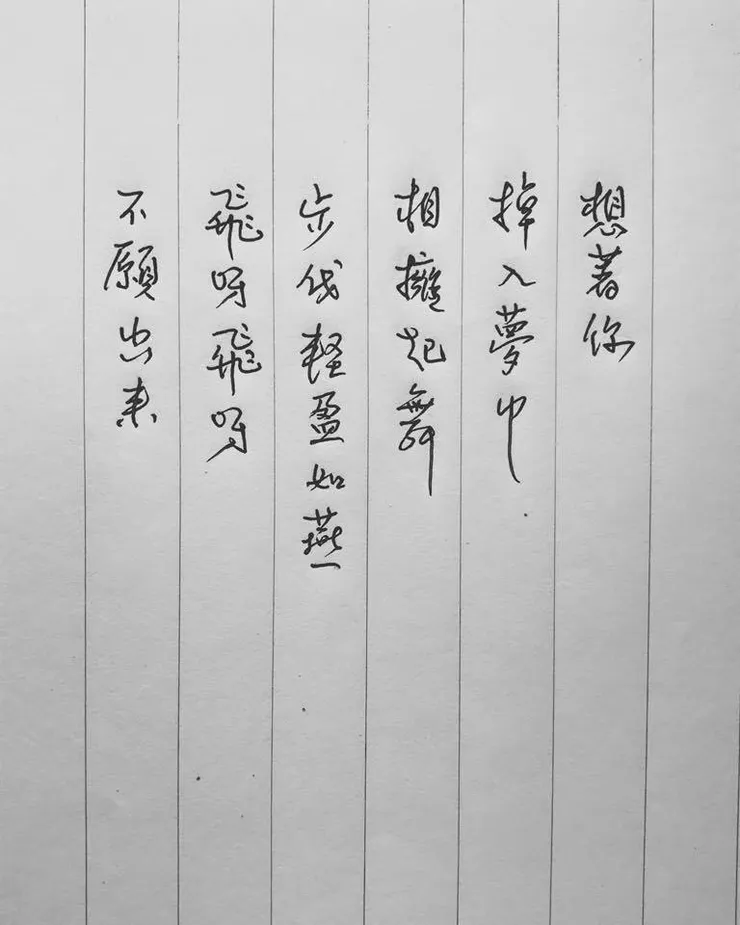 想著你
掉入夢中
相擁起舞
步伐輕盈如燕
飛呀飛呀
不願出來